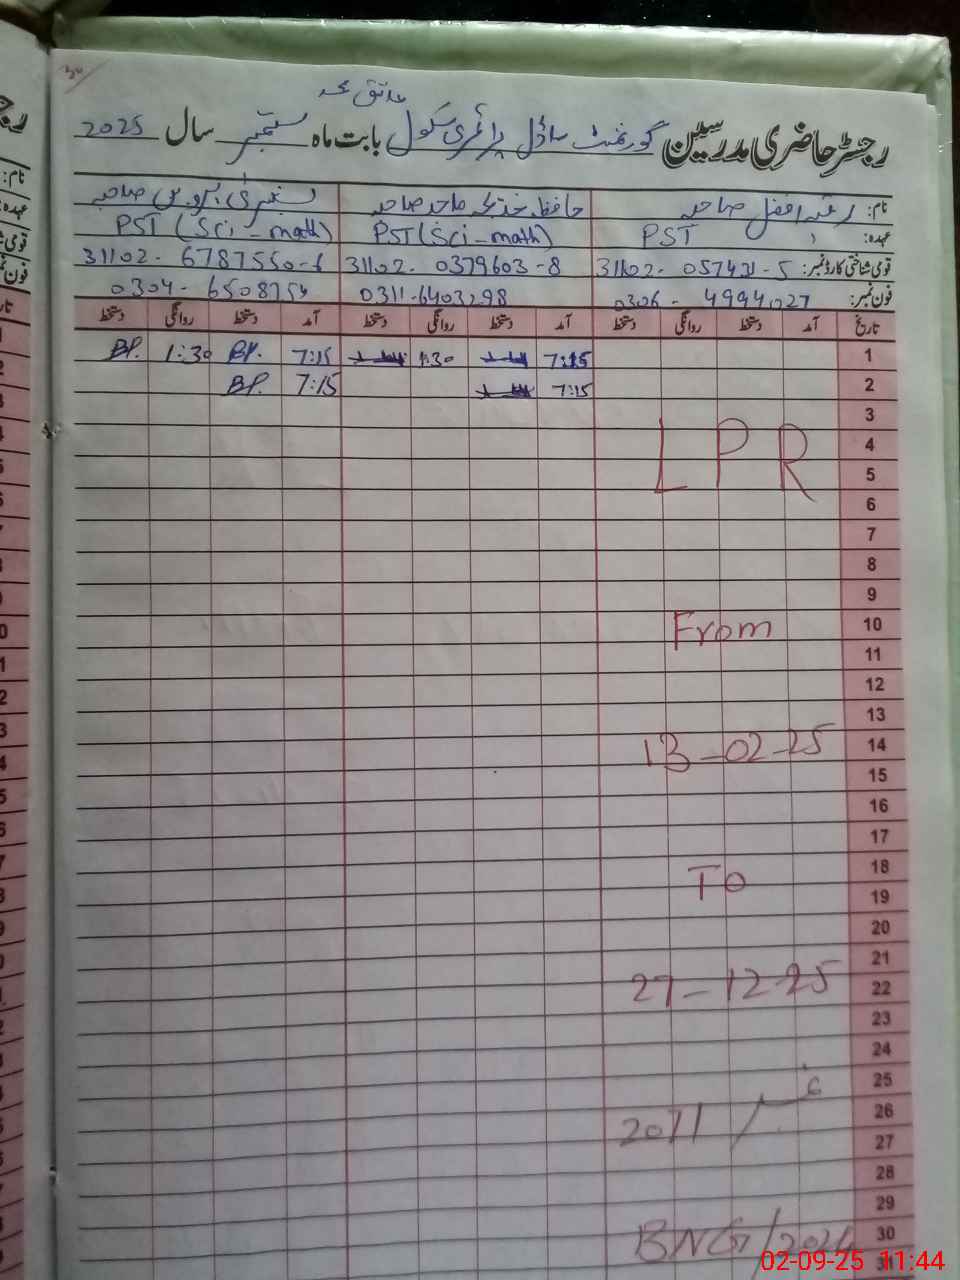 رجسٹر حاضری مدرسین گورنمنٹ ماڈل پرائمری سکول بابت ماہ ستمبر سال 2025
نام: افضل صاحبہ حافظہ خدیجہ ماجد صاحبہ بشریٰ پروین صاحبہ
عہدہ: PST PST (Sci-math) PST (Sci-math)
قومی شناختی کارڈ نمبر: 31102- 0379603-8 31102- 6787550-6
فون نمبر: 0306- 4994027 0311-6403298
تاریخ آمد دستخط روانگی دستخط آمد دستخط روانگی دستخط آمد دستخط روانگی دستخط
1 7:15 1:30 7:15 BP. 1:30 BP.
2 7:15 7:15 BP.
3
4 LPR
5
6
7
8
9
10 From
11
12
13
14 13-02-25
15
16
17
18 To
19
20
21
22 27-12-25
23
24
25
26
27
28
29
30
31
02-09-25 11:44